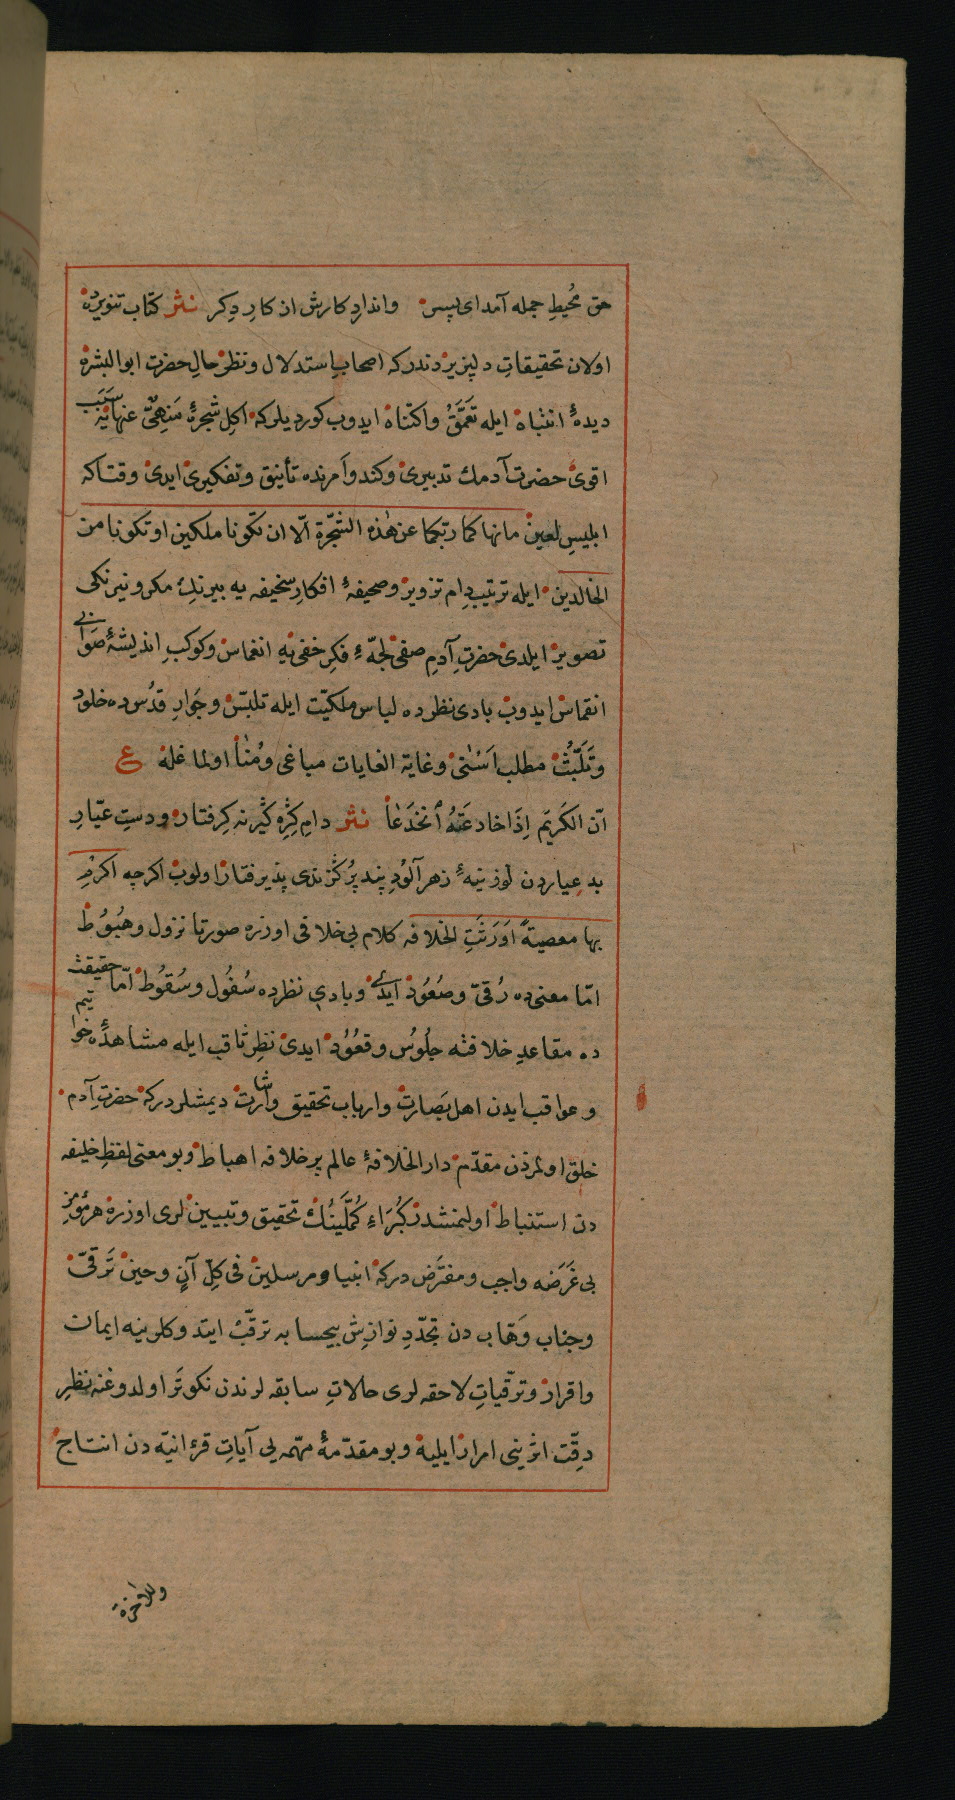 حق مُحیطِ جمله آمد ای پسر واندارد کارش از کارِ دِکر نثر کتاب تنویرده
اولان تحقیقاتِ دلپزیردندرکه اصحابِ استدلال ونظر حالِ حضرت ابوالبشره
دیدهٔ انتباه ایله تَعَمُّق واکتناه ایدوب کوردیلرکه اکلِ شجرهٔ مَنهیٌّ عنهانیه سَبَب
اقوی حضرت آدمك تدبیری وکندو اَمرنده تأنیق وتفکیری ایدی وقتاکه
ابلیسِ لعین مانهاکما ربّکما عن هٰذه الشّجرة الّا ان تکونا ملکین اوتکونا من
الخالدین ایله ترتیب دِام تزویر وصحیفهٔ افکارِ سخیفه یه بیرنكِ مکر ونیرنکی
تصویر ایلدی حضرتِ آدمِ صفی لجّهٔ فکرِ خفی یه انغماس وکوکبِ اندیشهٔ صَوابی
انقماس ایدوب بادی نظرده لباس ملکیّت ایله تلبّس وجَوارِ قدُس ده خلود
وتَلَبُّث مطلب اَسْنٰی وغایة الغایات مباغی ومُنٰا اولماغله ع
انّ الکَریَم اِذَا خادعَتَهُ انخَدَعَا نثر دامِ کِژِه کثیرنه کرفتار ودستِ عیّارِ
بد عیاردن لوزینهٔ زهرآلودِ پند پُر کژندی پذیرفتار اولوب اکرچه اکرِم
بها معصیةً اَوَرَثَتِ الخلافه کلام بی خلافی اوزره صورتا نزول وهُبُوُط
امّا معنی ده رُقیّ وصُعُوُد ایدی وبادیِ نظرده سُفُول وسُقوُط امّا حقیقت
ده مقاعدِ خلافته جلُوُس وقعُوُد ایدی نظرِ ثاقب ایله مشاهدهٔ خواتیم
وعواقب ایدن اهل بَصارت وارباب تحقیق واشارت دیمشلردرکه حضرتِ آدم
خلق اولمزدن مقدّم دارالخلافهٔ عالم پرخلافه اهباط وبو معنی لفظِ خلیفه
دن استنباط اولنمشدر کُبَرَاءِ کُمَّلَینُك تحقیق وتبیین لری اوزره هر مؤمنِ
بی غَرَضه واجب ومفترَض درکه انبیا ومرسلین فی کلِّ آنٍ وحین تَرَقیّ
وجناب وَهّاب دن تجدّدِ نوازشِ بیحسابه ترقّب ایتدوکلرینه ایمان
واقرار وترقّیاتِ لاحقه لری حالاتِ سابقه لرندن نکوتَر اولدوغنه نظرِ
دقِّت اثرینی امرار ایلیه وبو مقدّمهٔ مهّمه یی آیاتِ قرءانیّه دن انتاج
وللآخرة